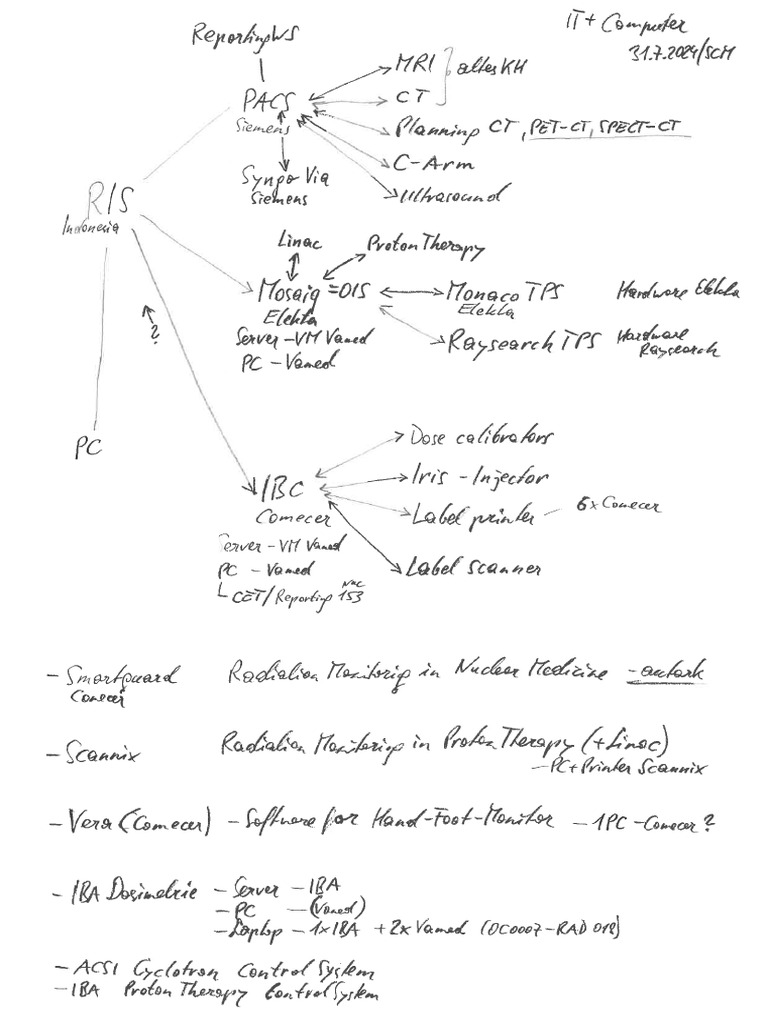 IT + Computer
31.7.2024/SCM
ReportingWS
MRI
altes KH
PACS
CT
Siemens
Planning CT, PET-CT, SPECT-CT
C-Arm
Syngo Via
Siemens
Ultrasound
RIS
Indonesia
Linac
Proton Therapy
Mosaiq = OIS
Monaco TPS
Hardware Elekta
Elekta
Elekta
Server - VM Vamed
Raysearch TPS
Hardware
Raysearch
PC - Vamed
?
PC
Dose calibrators
IBC
Iris - Injector
Comecer
Label printer - 6x Comecer
Server - VM Vamed
PC - Vamed
Label scanner
CET/Reporting NUC 153
- Smartguard Radiation Monitorig in Nuclear Medicine - autark
Comecer
- Scannix Radiation Monitoring in Proton Therapy (+Linac)
- PC + Printer Scannix
- Vera (Comecer) - Software for Hand-Foot-Monitor - 1PC - Comecer?
- IBA Dosimetrie - Server - IBA
- PC - (Vamed)
- Laptop - 1x IBA + 2x Vamed (OC0007-RAD 018)
- ACSI Cyclotron Control System
- IBA Proton Therapy Control System